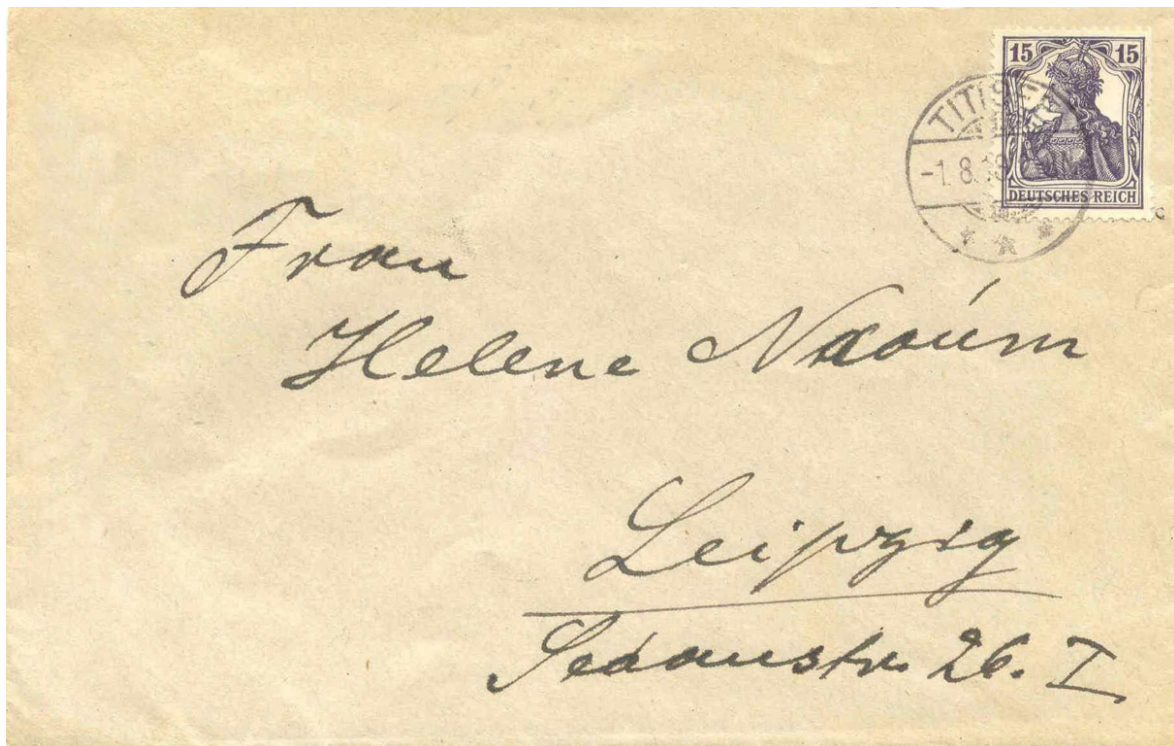 15 15
DEUTSCHES REICH
TITISEE
-1.8.18
Frau
Helene Naoúm
Leipzig
Sedanstr. 26. I